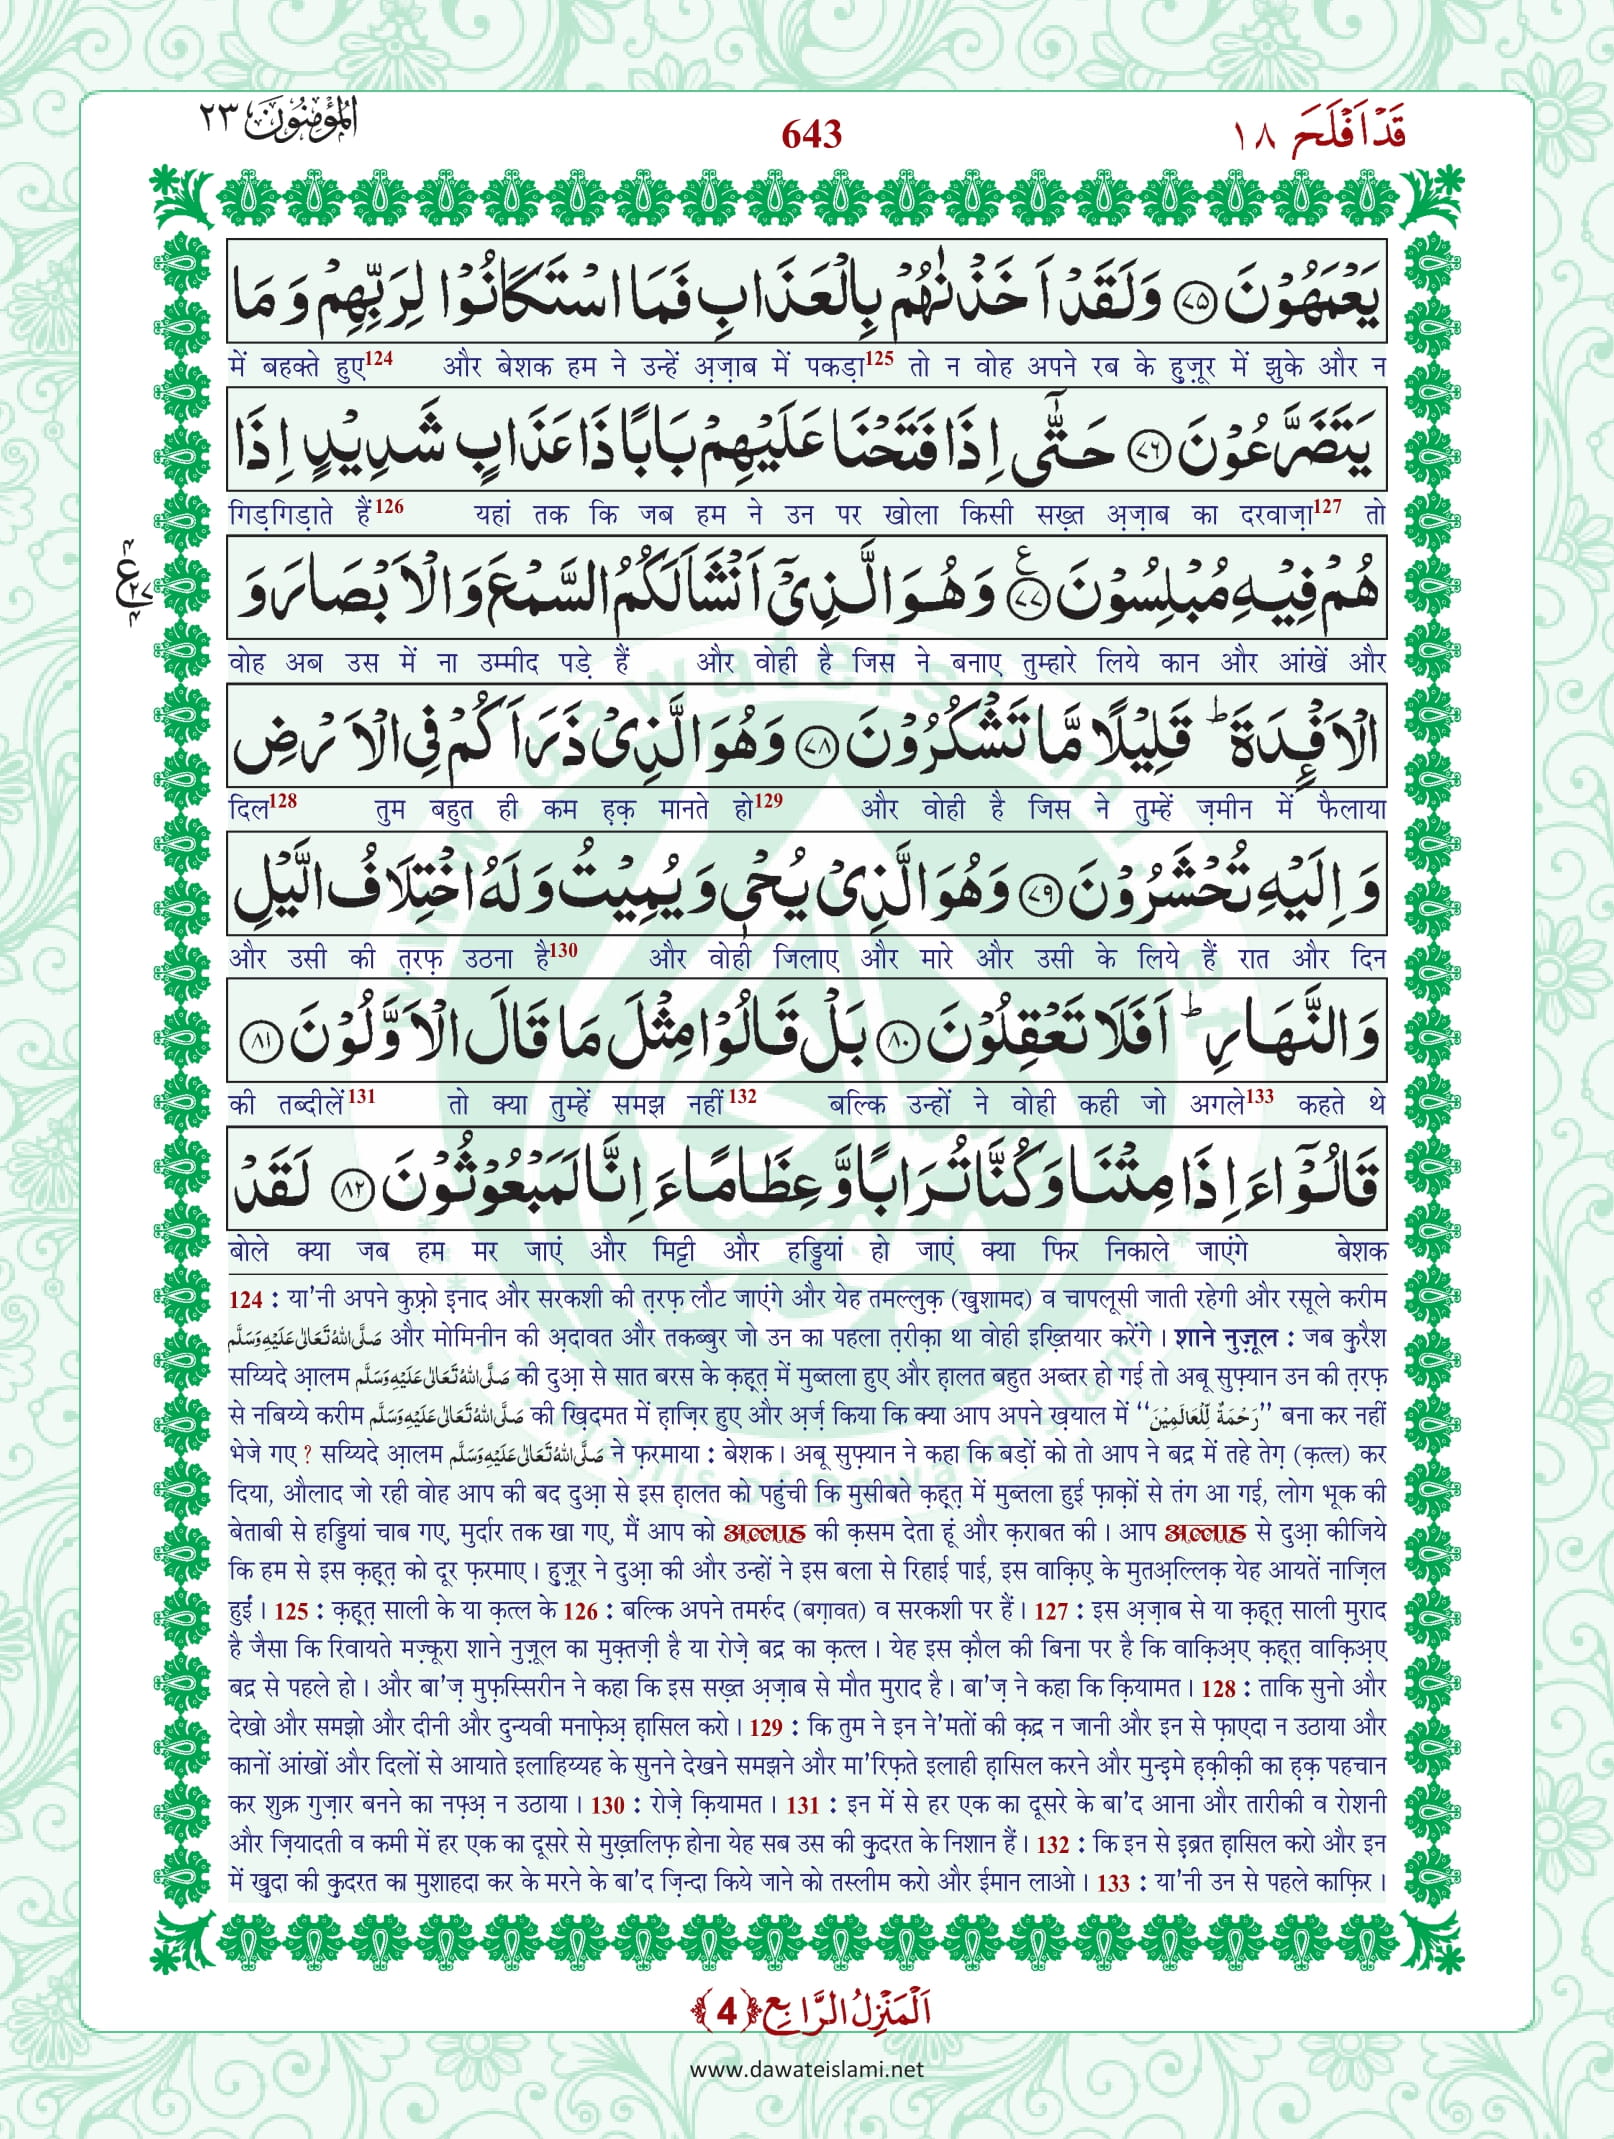 قَدۡ اَفۡلَحَ ١٨
643
الۡمُؤۡمِنُوۡنَ ٢٣
يَعۡمَهُوۡنَ ﴿٧٥﴾ وَلَقَدۡ اَخَذۡنٰهُمۡ بِالۡعَذَابِ فَمَا اسۡتَكَانُوۡا لِرَبِّهِمۡ وَمَا
में बहक्ते हुए124 और बेशक हम ने उन्हें अ़ज़ाब में पकड़ा125 तो न वोह अपने रब के हुज़ूर में झुके और न
يَتَضَرَّعُوۡنَ ﴿٧٦﴾ حَتّٰٓى اِذَا فَتَحۡنَا عَلَيۡهِمۡ بَابًا ذَا عَذَابٍ شَدِيۡدٍ اِذَا
गिड़गिड़ाते हैं126 यहां तक कि जब हम ने उन पर खोला किसी सख़्त अ़ज़ाब का दरवाज़ा127 तो
هُمۡ فِيۡهِ مُبۡلِسُوۡنَ ﴿٧٧﴾ وَهُوَ الَّذِىۡۤ اَنۡشَاَ لَكُمُ السَّمۡعَ وَالۡاَبۡصَارَ وَ
वोह अब उस में ना उम्मीद पड़े हैं और वोही है जिस ने बनाए तुम्हारे लिये कान और आंखें और
الۡاَفۡـِٕدَةَ ؕ قَلِيۡلًا مَّا تَشۡكُرُوۡنَ ﴿٧٨﴾ وَهُوَ الَّذِىۡ ذَرَاَكُمۡ فِى الۡاَرۡضِ
दिल128 तुम बहुत ही कम ह़क़ मानते हो129 और वोही है जिस ने तुम्हें ज़मीन में फैलाया
وَاِلَيۡهِ تُحۡشَرُوۡنَ ﴿٧٩﴾ وَهُوَ الَّذِىۡ يُحۡىٖ وَيُمِيۡتُ وَلَهُ اخۡتِلَافُ الَّيۡلِ
और उसी की त़रफ़ उठना है130 और वोही जिलाए और मारे और उसी के लिये हैं रात और दिन
وَالنَّهَارِ ؕ اَفَلَا تَعۡقِلُوۡنَ ﴿٨٠﴾ بَلۡ قَالُوۡا مِثۡلَ مَا قَالَ الۡاَوَّلُوۡنَ ﴿٨١﴾
की तब्दीलें131 तो क्या तुम्हें समझ नहीं132 बल्कि उन्हों ने वोही कही जो अगले133 कहते थे
قَالُوۡۤا ءَاِذَا مِتۡنَا وَكُنَّا تُرَابًا وَّعِظَامًا ءَاِنَّا لَمَبۡعُوۡثُوۡنَ ﴿٨٢﴾ لَقَدۡ
बोले क्या जब हम मर जाएं और मिट्टी और हड्डियां हो जाएं क्या फिर निकाले जाएंगे बेशक
124 : या'नी अपने कुफ़्रो इ़नाद और सरकशी की त़रफ़ लौट जाएंगे और येह तमल्लुक़ (खुशामद) व चापलूसी जाती रहेगी और रसूले करीम
صَلَّى اللهُ تَعَالٰى عَلَيْهِ وَسَلَّم और मोमिनीन की अ़दावत और तकब्बुर जो उन का पहला त़रीक़ा था वोही इख़्तियार करेंगे । शाने नुज़ूल : जब कुरैश
सय्यिदे आ़लम صَلَّى اللهُ تَعَالٰى عَلَيْهِ وَسَلَّم की दुआ़ से सात बरस के क़ह़त़ में मुब्तला हुए और ह़ालत बहुत अब्तर हो गई तो अबू सुफ़्यान उन की त़रफ़
से नबिय्ये करीम صَلَّى اللهُ تَعَالٰى عَلَيْهِ وَسَلَّم की खि़दमत में ह़ाज़िर हुए और अ़र्ज़ किया कि क्या आप अपने ख़याल में ‘‘رَحْمَةٌ لِّلْعَالَمِيْنَ’’ बना कर नहीं
भेजे गए ? सय्यिदे आ़लम صَلَّى اللهُ تَعَالٰى عَلَيْهِ وَسَلَّم ने फ़रमाया : बेशक । अबू सुफ़्यान ने कहा कि बड़ों को तो आप ने बद्र में तहे तेग़ (क़त्ल) कर
दिया, औलाद जो रही वोह आप की बद दुआ़ से इस ह़ालत को पहुंची कि मुसीबते क़ह़त़ में मुब्तला हुई फ़ाक़ों से तंग आ गई, लोग भूक की
बेताबी से हड्डियां चाब गए, मुर्दार तक खा गए, मैं आप को अल्लाह की क़सम देता हूं और क़राबत की । आप अल्लाह से दुआ़ कीजिये
कि हम से इस क़ह़त़ को दूर फ़रमाए । हुज़ूर ने दुआ़ की और उन्हों ने इस बला से रिहाई पाई, इस वाक़िए़ के मुतअ़ल्लिक़ येह आयतें नाज़िल
हुईं । 125 : क़ह़त़ साली के या क़त्ल के 126 : बल्कि अपने तमर्रुद (बग़ावत) व सरकशी पर हैं । 127 : इस अ़ज़ाब से या क़ह़त़ साली मुराद
है जैसा कि रिवायते मज़्कूरा शाने नुज़ूल का मुक़्तज़ी है या रोज़े बद्र का क़त्ल । येह इस क़ौल की बिना पर है कि वाक़िअ़ए क़ह़त़ वाक़िअ़ए
बद्र से पहले हो । और बा'ज़ मुफ़स्सिरीन ने कहा कि इस सख़्त अ़ज़ाब से मौत मुराद है । बा'ज़ ने कहा कि क़ियामत । 128 : ताकि सुनो और
देखो और समझो और दीनी और दुन्यवी मनाफ़ेअ़ ह़ासिल करो । 129 : कि तुम ने इन ने'मतों की क़द्र न जानी और इन से फ़ाएदा न उठाया और
कानों आंखों और दिलों से आयाते इलाहिय्यह के सुनने देखने समझने और मा'रिफ़ते इलाही ह़ासिल करने और मुन्इ़मे ह़क़ीक़ी का ह़क़ पहचान
कर शुक्र गुज़ार बनने का नफ़्अ़ न उठाया । 130 : रोज़े क़ियामत । 131 : इन में से हर एक का दूसरे के बा'द आना और तारीकी व रोशनी
और ज़ियादती व कमी में हर एक का दूसरे से मुख़्तलिफ़ होना येह सब उस की क़ुदरत के निशान हैं । 132 : कि इन से इ़ब्रत ह़ासिल करो और इन
में खुदा की क़ुदरत का मुशाहदा कर के मरने के बा'द ज़िन्दा किये जाने को तस्लीम करो और ईमान लाओ । 133 : या'नी उन से पहले काफ़िर ।
اَلۡمَنۡزِلُ الرَّابِع ﴿4﴾
www.dawateislami.net